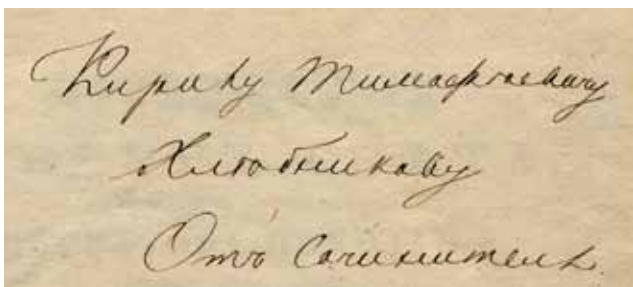 Кирилу Тимофѣевичу
Хлѣбникову
Отъ Сочинителя